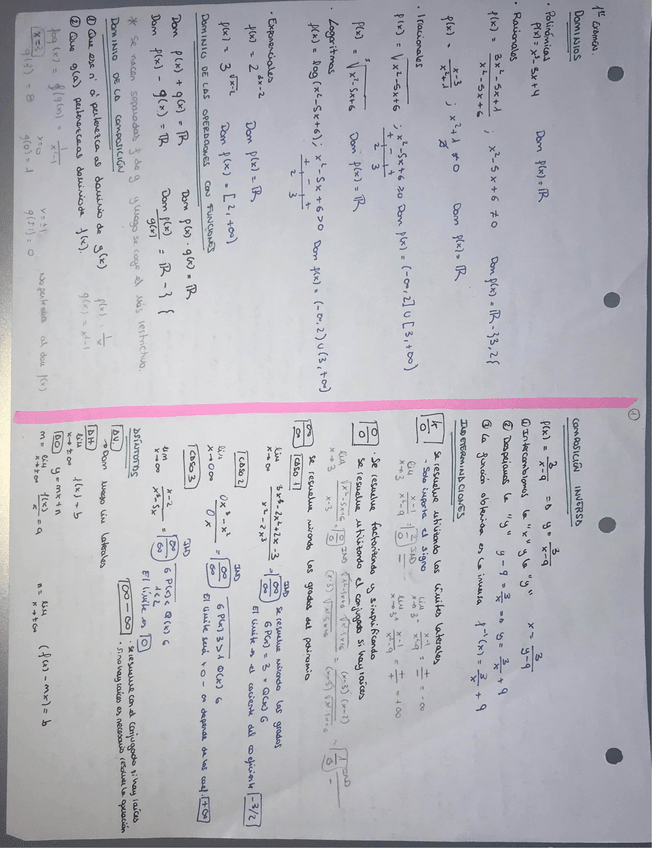 1ª EVALUA.
DOMINIOS
· Polinómicas
f(x) = x²-5x+4    Dom f(x) = ℝ
· Racionales
f(x) = 3x²-5x+1 / x²-5x+6 ; x²-5x+6 ≠ 0    Dom f(x) = ℝ-}3,2{
f(x) = x-3 / x²+1 ; x²+1 ≠ 0    Dom f(x) = ℝ
∄
· Irracionales
f(x) = √x²-5x+6 ; x²-5x+6 ≥ 0    Dom f(x) = (-∞,2] ∪ [3,+∞)
+ - +
2 3
f(x) = ³√x²-5x+6    Dom f(x) = ℝ
· Logaritmos
f(x) = log (x²-5x+6) ; x²-5x+6 > 0    Dom f(x) = (-∞,2) ∪ (3,+∞)
+ - +
2 3
· Exponenciales
Dom f(x) = ℝ
f(x) = 3^√x-2    Dom f(x) = [2,+∞)
DOMINIO DE LAS OPERACIONES CON FUNCIONES
Dom f(x) + g(x) = ℝ    Dom f(x) · g(x) = ℝ
Dom f(x) - g(x) = ℝ    Dom f(x)/g(x) = ℝ - } {
* Se hacen separadas f de g y luego se coge el más restrictivo.
DOMINIO DE LA COMPOSICIÓN
① Que ese nº a pertenezca al dominio de g(x)    f(x) = 1/x
② Que g(a) pertenezca al dominio de f(x).    g(x) = x²-1
fog(x) = f(g(x)) = 1/x²-1    x = ±1 no pertenece al dom f(x)
x=3    x=0    g(±1) = 0
g(3) = 8
①
COMPOSICIÓN INVERSA
f(x) = 3/x-9 ⇒ y = 3/x-9
① Intercambiamos la "x" y la "y"    x = 3/y-9
② Despejamos la "y"    y-9 = 3/x ⇒ y = 3/x + 9
③ La función obtenida es la inversa    f⁻¹(x) = 3/x + 9
INDETERMINACIONES
k/0 Se resuelve utilizando los límites laterales
- Solo importa el signo
lim x→3 x-1/x²-9 = 2/0 IND    lim x→3⁻ x-1/x²-9 = +/- = -∞
lim x→3⁺ x-1/x²-9 = +/+ = +∞
0/0 · Se resuelve factorizando y simplificando
Se resuelve utilizando el conjugado si hay raíces
∞/∞ Se resuelve mirando los grados del polinomio
CASO 1
lim x→∞ 3x³-2x²+2x-3 / x²-2x³ = ∞/∞ IND Se resuelve mirando los grados
G P(x) = 3 = Q(x) G
El límite es el cociente del coeficiente -3/2
CASO 2
= ∞/∞ IND    G P(x) 3 > 1 Q(x) G
El límite será +∞ -∞ depende de los coef. +∞
CASO 3
lim x→∞ x-2 / x²-5x = ∞/∞ IND    G P(x) < Q(x) G
1 < 2
El límite es 0
∞-∞ · se resuelve con el conjugado si hay raíces
· si no hay raíces es necesario resolver la operación
ASÍNTOTAS
A.V.
→ Dom luego lím laterales
A.H
lim x→±∞ f(x) = b
A.O y = mx+n
m = lim x→±∞ f(x)/x = a    n = lim x→±∞ (f(x) - mx) = b